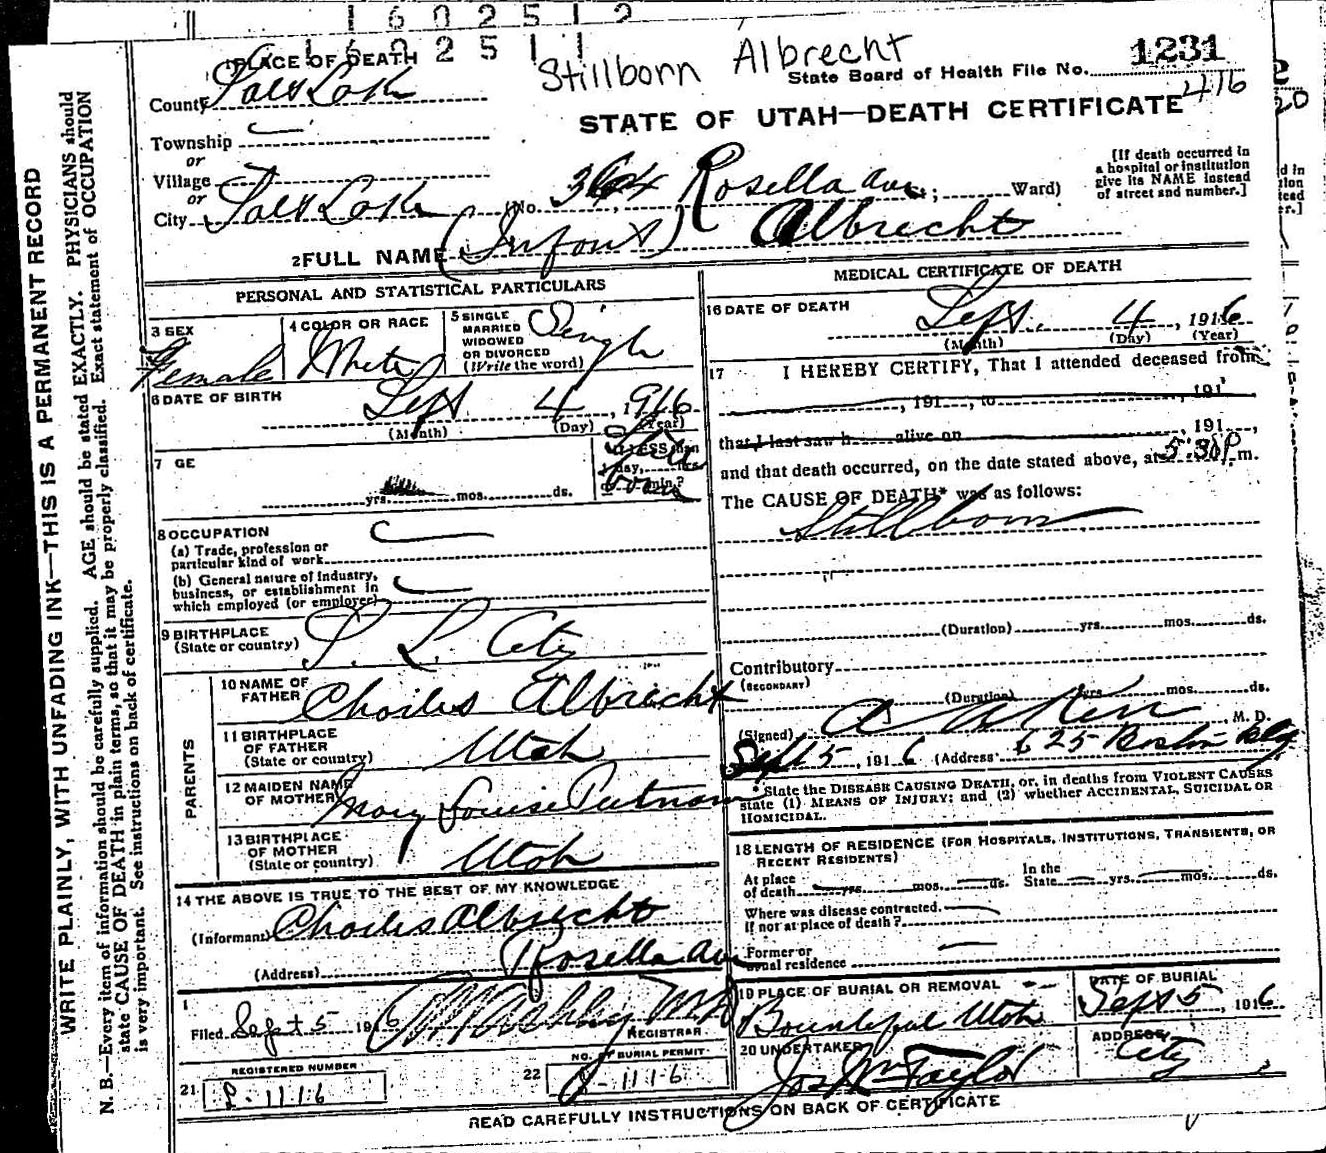 1602512
1602511
Stillborn Albrecht
1 PLACE OF DEATH
State Board of Health File No. 1231
416
County Salt Lake
STATE OF UTAH—DEATH CERTIFICATE
Township
or
Village
or
City Salt Lake (No. 364 Rosella Ave; Ward)
[If death occurred in
a hospital or institution
give its NAME instead
of street and number.]
2 FULL NAME (Infant) Albrecht
PERSONAL AND STATISTICAL PARTICULARS
3 SEX
Female
4 COLOR OR RACE
White
5 SINGLE
MARRIED
WIDOWED
OR DIVORCED
(Write the word)
Single
6 DATE OF BIRTH
Sept 4, 1916
(Month) (Day) (Year)
7 GE
yrs. mos. ds.
8 OCCUPATION
(a) Trade, profession or
particular kind of work
(b) General nature of industry,
business, or establishment in
which employed (or employer)
9 BIRTHPLACE
(State or country)
S. L. City
PARENTS
10 NAME OF
FATHER
Charles Albrecht
11 BIRTHPLACE
OF FATHER
(State or country)
Utah
12 MAIDEN NAME
OF MOTHER
Mary Louise Putnam
13 BIRTHPLACE
OF MOTHER
(State or country)
Utah
14 THE ABOVE IS TRUE TO THE BEST OF MY KNOWLEDGE
(Informant) Charles Albrecht
(Address) Rosella Ave
Filed Sept 5 1916
REGISTRAR
REGISTERED NUMBER
21
NO. OF BURIAL PERMIT
22
MEDICAL CERTIFICATE OF DEATH
16 DATE OF DEATH
Sept. 4, 1916
(Month) (Day) (Year)
17 I HEREBY CERTIFY, That I attended deceased from
, 191 , to , 191
that I last saw h alive on , 191 ,
and that death occurred, on the date stated above, at 5:30 P.m.
The CAUSE OF DEATH* was as follows:
Stillborn
(Duration) yrs. mos. ds.
Contributory
(SECONDARY)
(Duration) yrs. mos. ds.
(Signed) , M. D.
Sept 5, 1916 (Address) 625 Boston Blg
*State the DISEASE CAUSING DEATH, or, in deaths from VIOLENT CAUSES
state (1) MEANS OF INJURY; and (2) whether ACCIDENTAL, SUICIDAL OR
HOMICIDAL.
18 LENGTH OF RESIDENCE (FOR HOSPITALS, INSTITUTIONS, TRANSIENTS, OR
RECENT RESIDENTS)
At place
of death yrs. mos. ds.
In the
State yrs. mos. ds.
Where was disease contracted,
If not at place of death?
Former or
usual residence
19 PLACE OF BURIAL OR REMOVAL
Bountiful Utah
DATE OF BURIAL
Sept 5, 1916
20 UNDERTAKER
Jos Wm Taylor
ADDRESS
City
READ CAREFULLY INSTRUCTIONS ON BACK OF CERTIFICATE
WRITE PLAINLY, WITH UNFADING INK—THIS IS A PERMANENT RECORD
N. B.—Every item of information should be carefully supplied. AGE should be stated EXACTLY. PHYSICIANS should
state CAUSE OF DEATH in plain terms, so that it may be properly classified. Exact statement of OCCUPATION
is very important. See instructions on back of certificate.